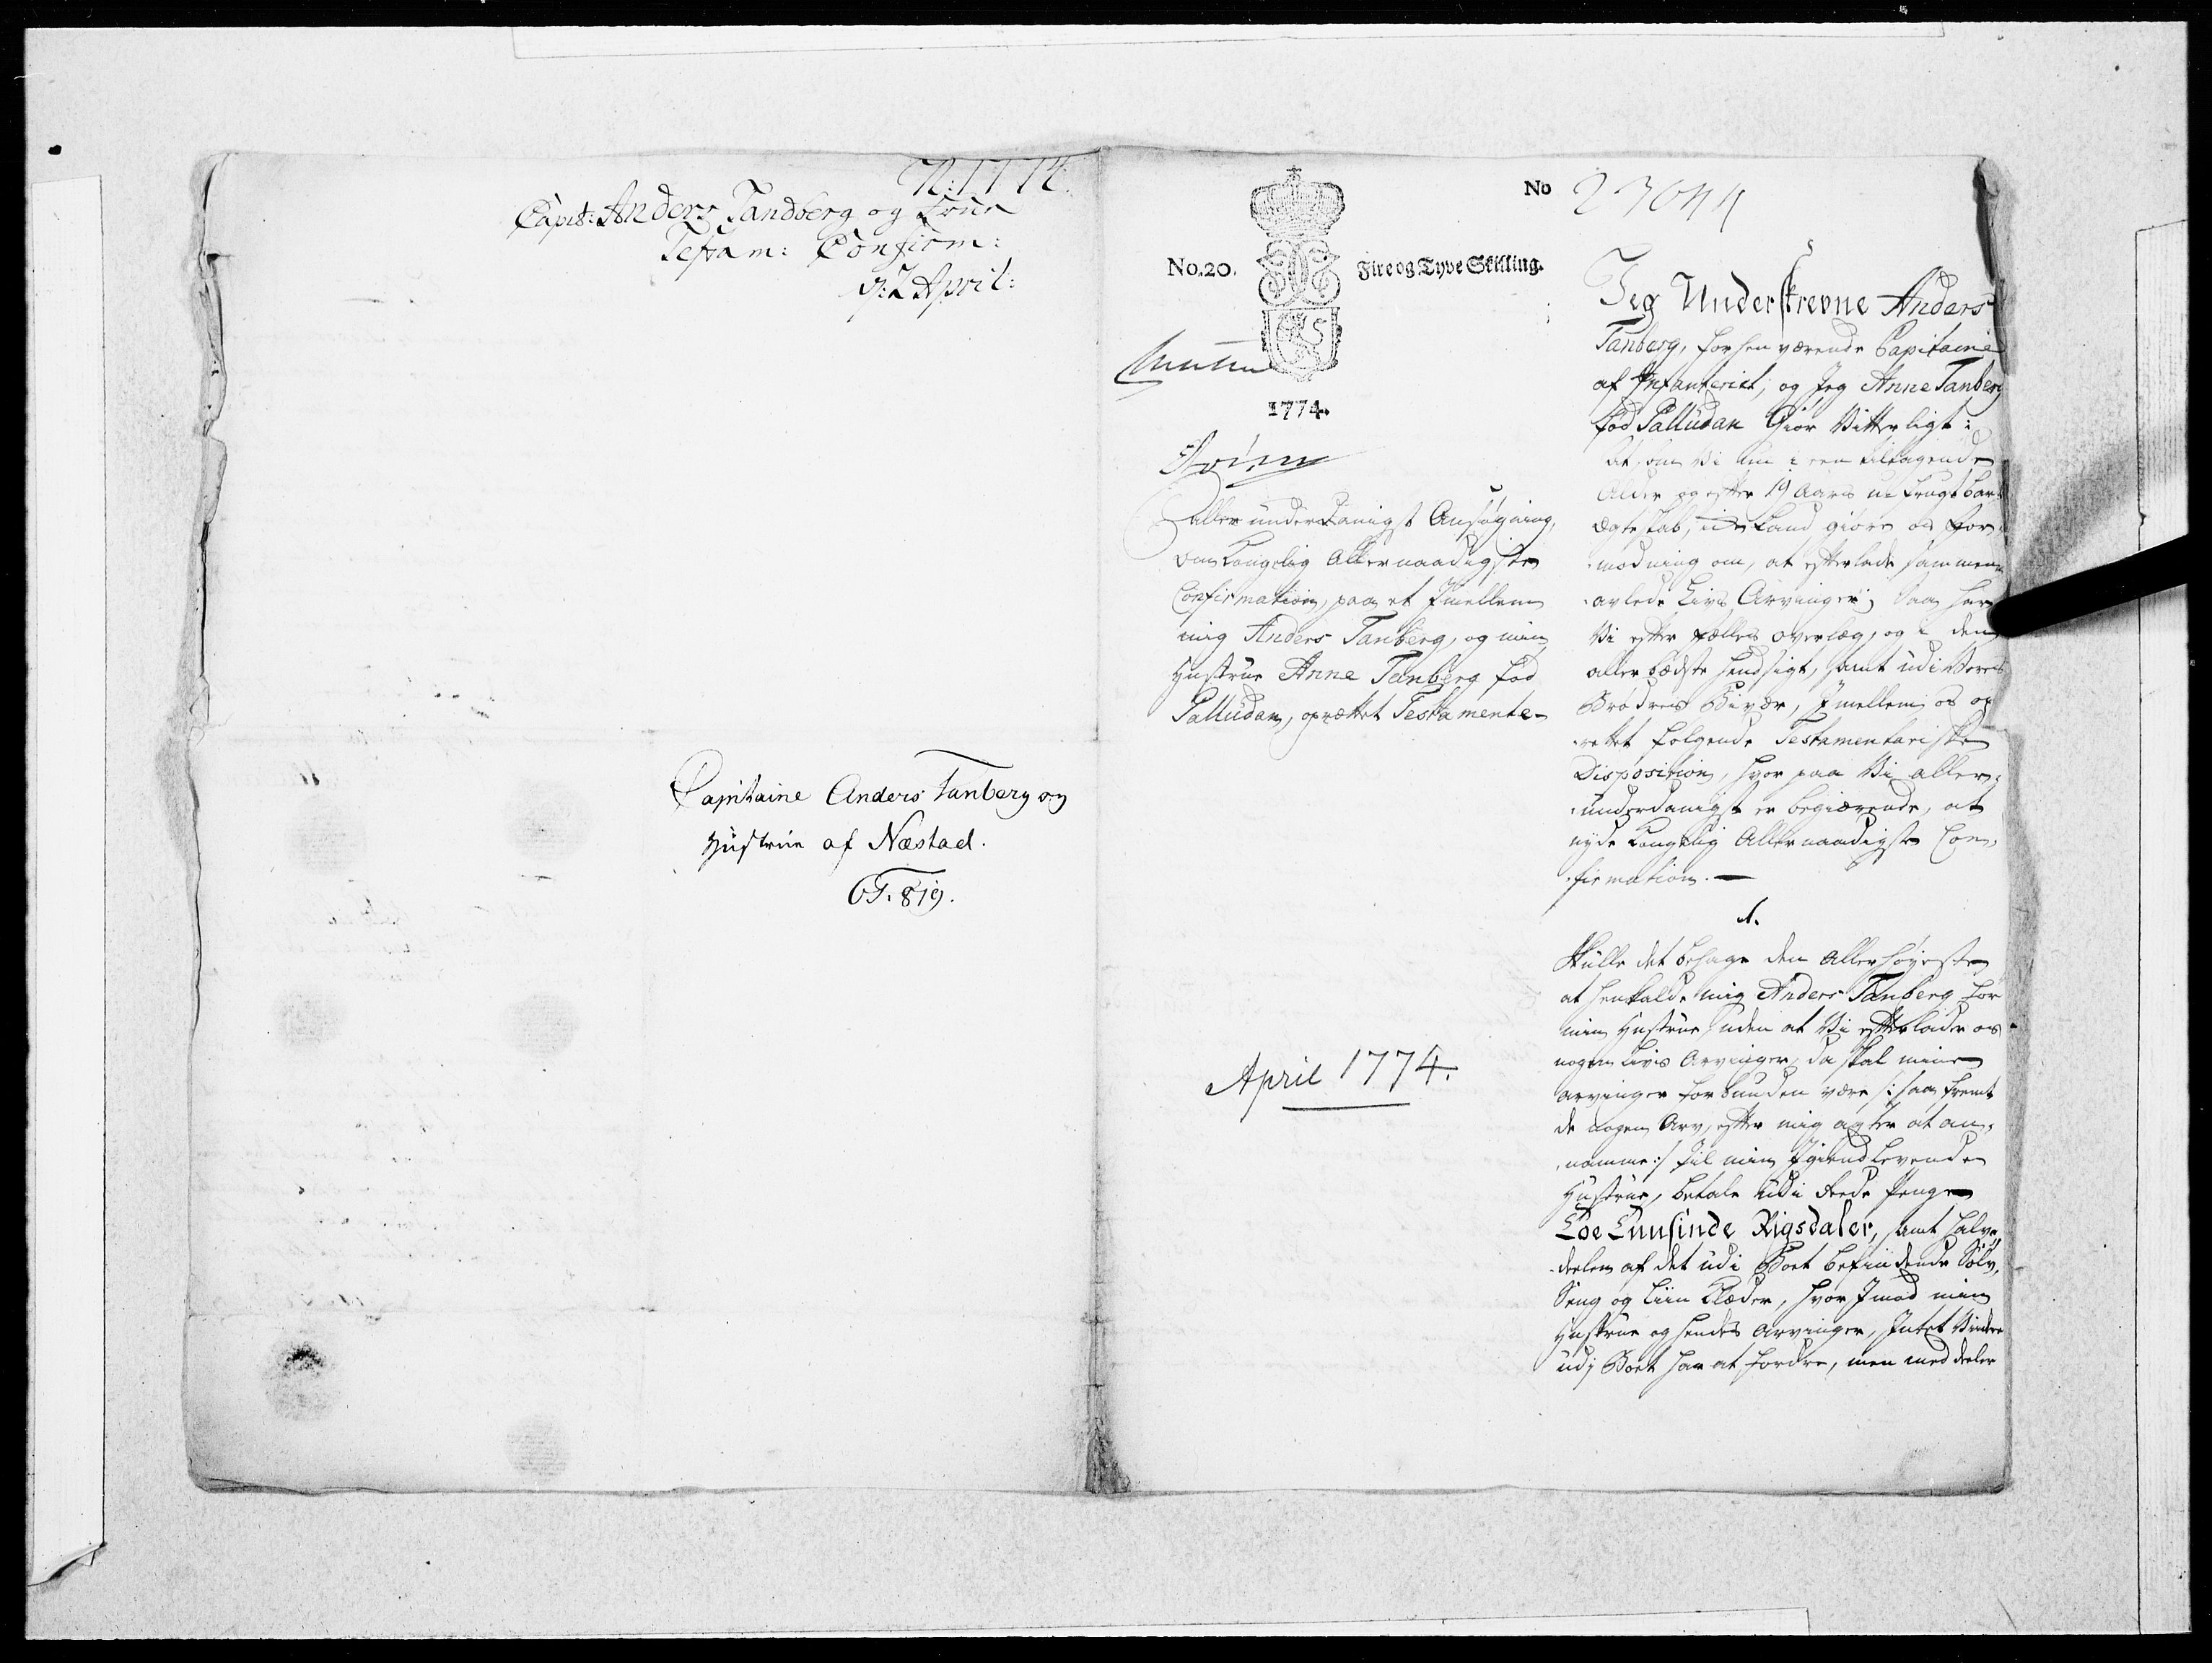 N: 1774.
Capit: Anders Tandberg og Frue
Testam: Confirm:
d: 2 April:
Capitaine Anders Tanberg og
Hustrue af Næstad.
OT. 819.
No 23044
No. 20. Fire og Tyve Skilling.
1774.
allerunderdanigst Ansøgning,
om Kongelig Allernaadigste
Confirmation, paa et Jmellem
mig Anders Tanberg, og min
Hustrue Anne Tanberg fød
Palludan, oprættet Testamente-
April 1774.
Jeg Underskrevne Anders
Tanberg, forhen værende Capitaine
af Infanteriet; og Jeg Anne Tanberg
fød Palludan Giør Vitterligt:
At om Vi nu i een tiltagende
Alder og efter 19 Aars ufrugtbar
Ægteskab, kand giøre os for-
-modning om, at efterlade sammen-
-avlede Livs Arvinger; Saa har
Vi efter fælles overlæg, og i den
aller bædste hensigt, samt udi Vores
Brødres Bivær, Jmellem os op
-rettet følgende Testamentariske
Disposition, hvor paa Vi aller-
-underdanigst er begiærende, at
nyde Kongelig Allernaadigste Con-
-firmation. —
1.
Skulle det behage den Allerhøyeste
at henkalde mig Anders Tanberg for
min Hustrue uden at Vi efterlader os
nogen Livs Arvinger, da skal mine
Arvinger forbunden være /: saa fremt
de nogen Arv, efter mig agter at an-
-namme :/ til min Igienlevende
Hustrue, betale udi Rede Penge
Toe Tuusinde Rigsdaler, samt halve
-deelen af det udi Boet befindende Sølv,
Seng og Liin Klæder, hvor Jmod min
Hustrue og hendes Arvinger, Jntet Videre
udj Boet har at fordre, men med deeler